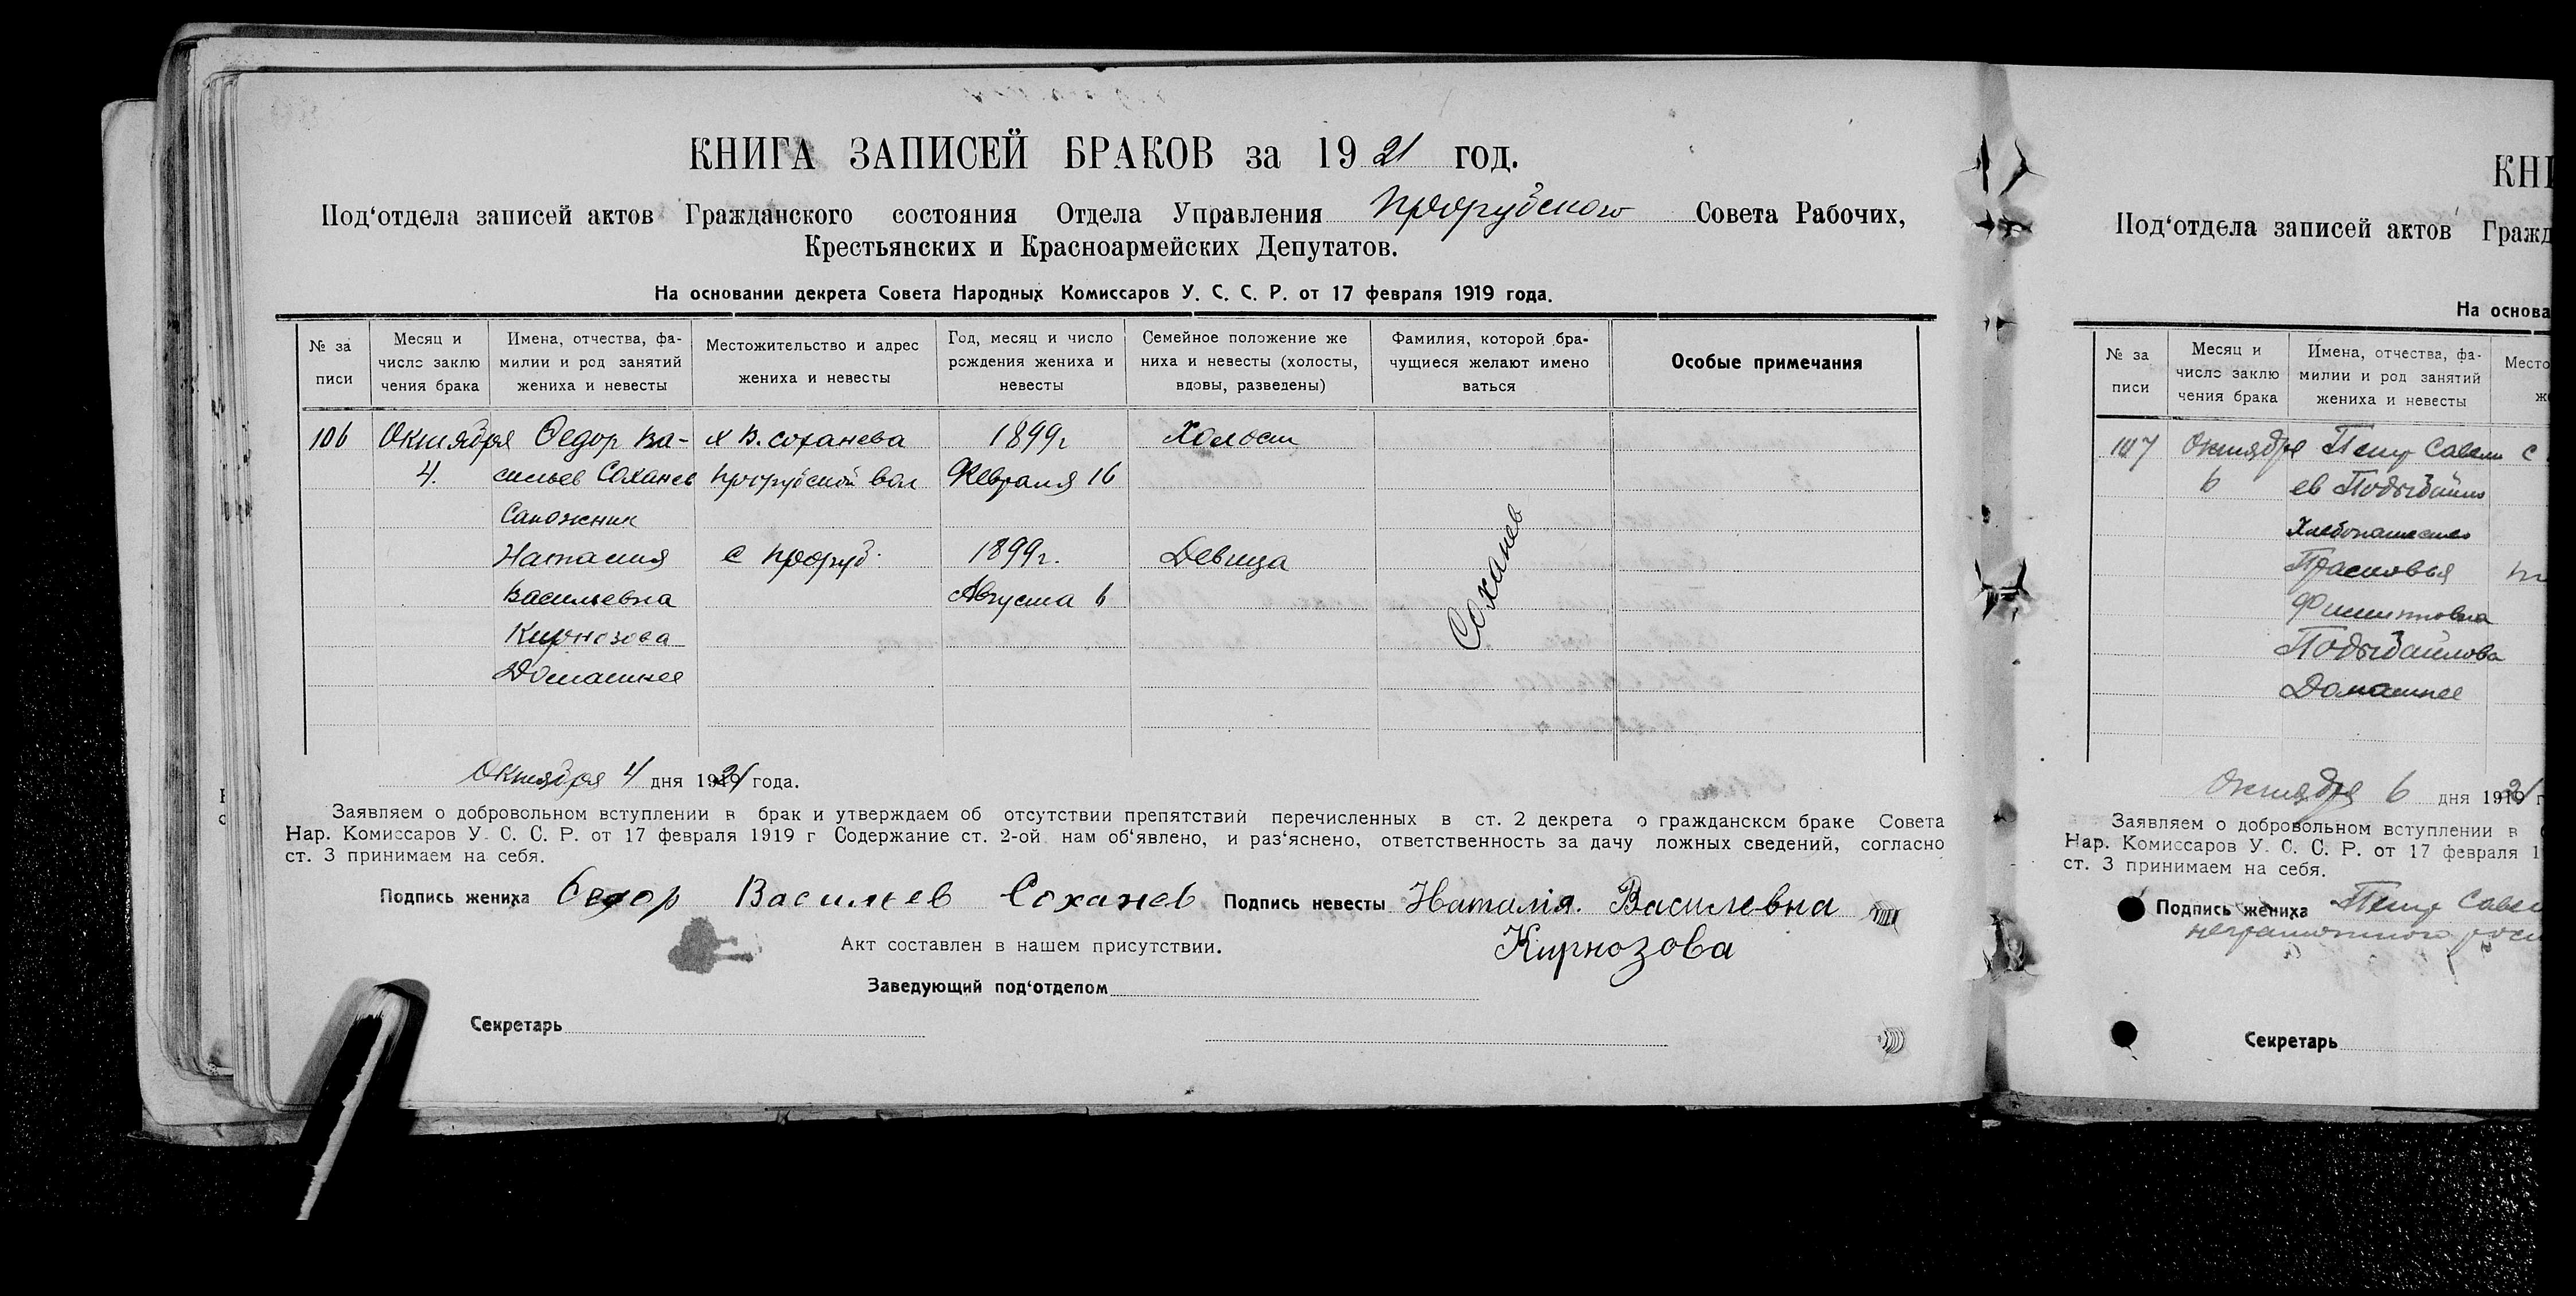 КНИГА ЗАПИСЕЙ БРАКОВ за 1921 год.
Под‘отдела записей актов Гражданского состояния Отдела Управления Прорубского Совета Рабочих,
Крестьянских и Красноармейских Депутатов.
На основании декрета Совета Народных Комиссаров У. С. С. Р. от 17 февраля 1919 года.
№ за Месяц и Имена, отчества, фа- Местожительство и адрес Год, месяц и число Семейное положение же Фамилия, которой бра- Особые примечания
писи число заклю милии и род занятий жениха и невесты рождения жениха и ниха и невесты (холосты, чущиеся желают имено
чения брака жениха и невесты невесты вдовы, разведены) ваться
106 Октября Федор Ва- х В. Соханева 1899г Холост
4. сильев Соханев Прорубской вол Февраля 16
Сапожник
Наталия с Проруб. 1899г. Девица
Васильевна Августа 6
Кирнозова
Домашнее
Соханев
Октября 4 дня 1921 года.
Заявляем о добровольном вступлении в брак и утверждаем об отсутствии препятствий перечисленных в ст. 2 декрета о гражданскcм браке Совета
Нар. Комиссаров У. С. С. Р. от 17 февраля 1919 г Содержание ст. 2-ой нам об‘явлено, и раз‘яснено, ответственность за дачу ложных сведений, согласно
ст. 3 принимаем на себя.
Подпись жениха Федор Васильев Соханев Подпись невесты Наталія. Василевна
Кирнозова
Акт составлен в нашем присутствии.
Заведующий под‘отделом
Секретарь
КНИ
Под‘отдела записей актов Гражд
На основа
№ за Месяц и Имена, отчества, фа- Место
писи число заклю милии и род занятий ж
чения брака жениха и невесты
107 Октября Петр Савель с
6 ев Подыбайло
Хлебопашество
Прасковья
Филипповна
Подыбайлова
Домашнее
Октября 6 дня 1921 г
Заявляем о добровольном вступлении в
Нар. Комиссаров У. С. С. Р. от 17 февраля 1
ст. 3 принимаем на себя.
Подпись жениха Петр Савел
неграмотного
Секретарь